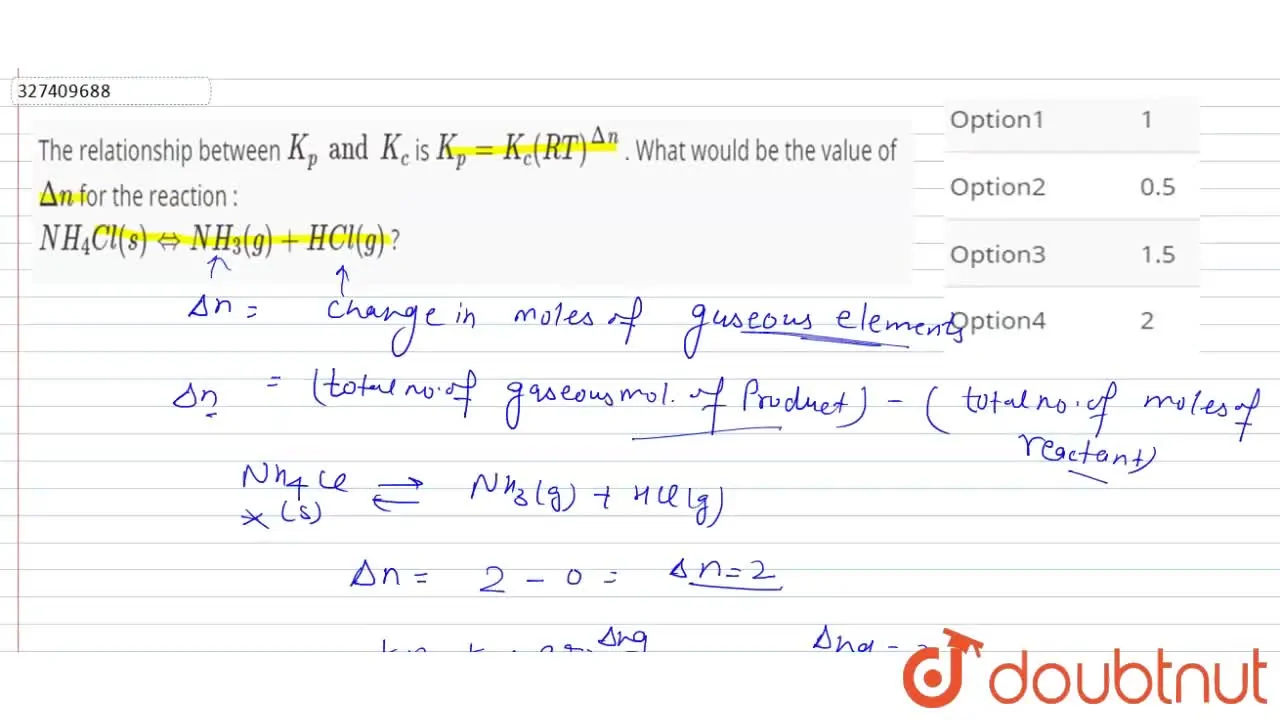 327409688
The relationship between K_p and K_c is K_p = K_c(RT)^Δn . What would be the value of
Δn for the reaction :
NH₄Cl(s) ⇔ NH₃(g) + HCl(g) ?
Option1 1
Option2 0.5
Option3 1.5
Option4 2
Δn = change in moles of gaseous elements
Δn = (total no. of gaseous mol. of Product) - ( total no. of moles of
reactant)
Nh4Cl ⇌ Nh3(g) + HCl(g)
(s)
Δn = 2 - 0 = Δn = 2
Δng
Δng =
doubtnut